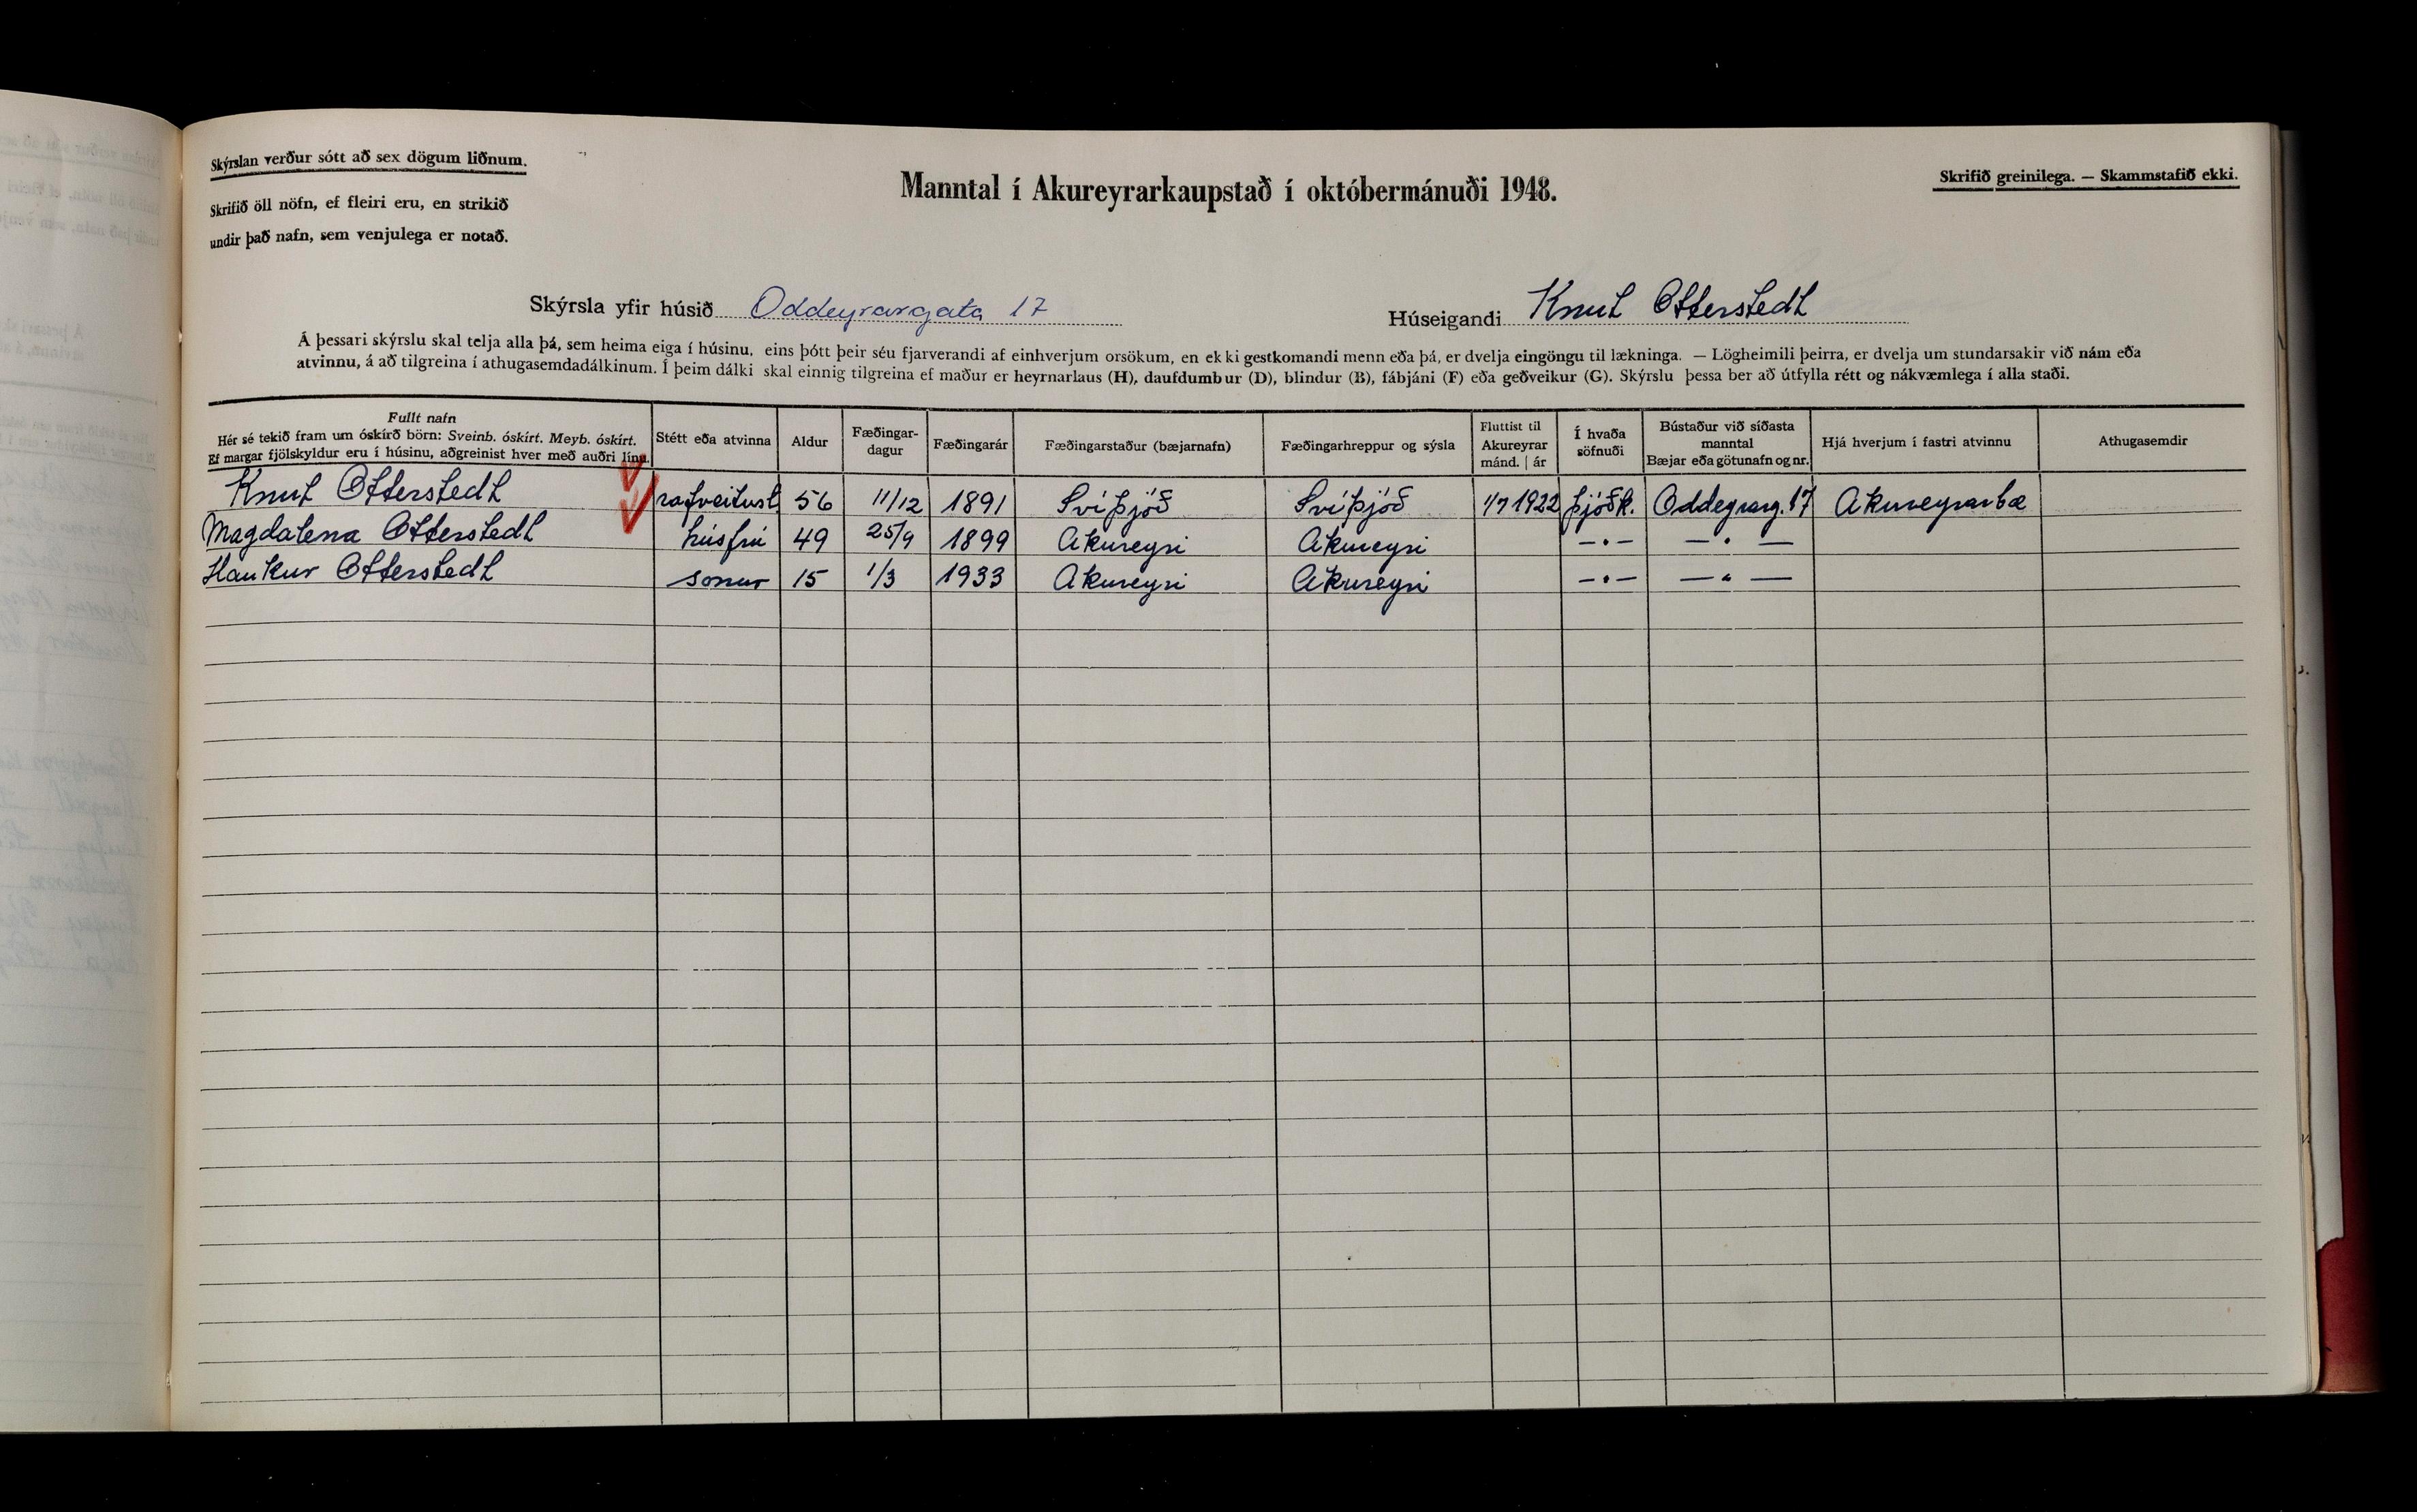 Skýrslan verður sótt að sex dögum liðnum.
Skrifið öll nöfn, ef fleiri eru, en strikið
undir það nafn, sem venjulega er notað.
Manntal í Akureyrarkaupstað í októbermánuði 1948.
Skrifið greinilega. — Skammstafið ekki.
Skýrsla yfir húsið Oddeyrargata 17
Húseigandi Knut Otterstedt
Á þessari skýrslu skal telja alla þá, sem heima eiga í húsinu, eins þótt þeir séu fjarverandi af einhverjum orsökum, en ekki gestkomandi menn eða þá, er dvelja eingöngu til lækninga. — Lögheimili þeirra, er dvelja um stundarsakir við nám eða
atvinnu, á að tilgreina í athugasemdadálkinum. Í þeim dálki skal einnig tilgreina ef maður er heyrnarlaus (H), daufdumbur (D), blindur (B), fábjáni (F) eða geðveikur (G). Skýrslu þessa ber að útfylla rétt og nákvæmlega í alla staði.
Fullt nafn
Hér sé tekið fram um óskírð börn: Sveinb. óskírt. Meyb. óskírt.
Ef margar fjölskyldur eru í húsinu, aðgreinist hver með auðri línu.
Stétt eða atvinna
Aldur
Fæðingar-
dagur
Fæðingarár
Fæðingarstaður (bæjarnafn)
Fæðingarhreppur og sýsla
Fluttist til
Akureyrar
mánd. | ár
Í hvaða
söfnuði
Bústaður við síðasta
manntal
Bæjar eða götunafn og nr.
Hjá hverjum í fastri atvinnu
Athugasemdir
Knut Otterstedt rafveitust 56 11/12 1891 Svíþjóð Svíþjóð 1/7 1922 Þjóðk. Oddeyrarg. 17 Akureyrarbæ
Magdalena Otterstedt húsfrú 49 25/9 1899 Akureyri Akureyri — . — — . —
Haukur Otterstedt sonur 15 1/3 1933 Akureyri Akureyri — . — — " —